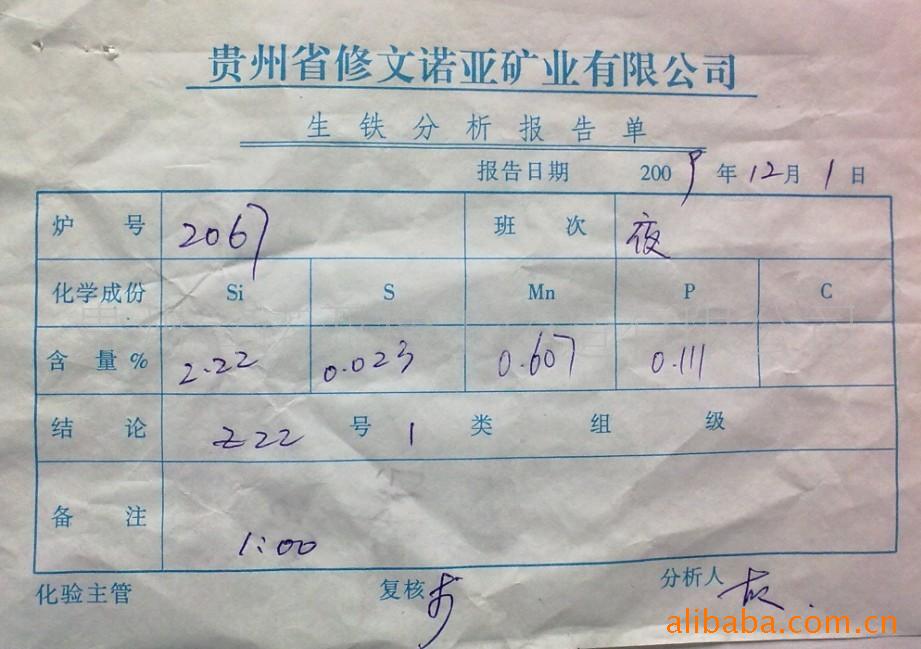 贵州省修文诺亚矿业有限公司
生铁分析报告单
报告日期 2009年12月1日
炉号 2067 班次 夜
化学成份 Si S Mn P C
含量% 2.22 0.023 0.607 0.111
结论 Z22号 1类 组 级
备注 1:00
化验主管 复核 分析人
alibaba.com.cn